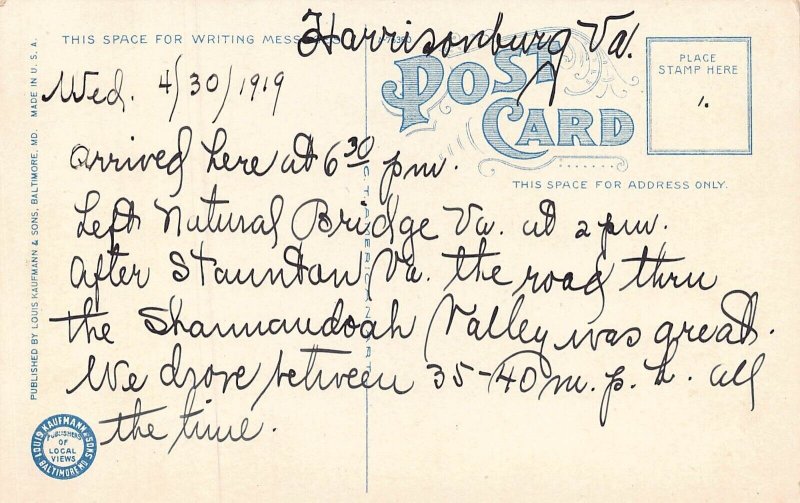 Harrisonburg Va.
THIS SPACE FOR WRITING MESSAGES
POST CARD
PLACE
STAMP HERE
1.
THIS SPACE FOR ADDRESS ONLY.
Wed. 4/30/1919
arrived here at 6 30 pm.
Left Natural Bridge Va. at 2 pm.
After Staunton Va. the road thru
the Shannandoah Valley was great.
We drove between 35-40 m.p.h. all
the time.
PUBLISHED BY LOUIS KAUFMANN & SONS, BALTIMORE, MD. MADE IN U.S.A.
LOUIS KAUFMANN & SONS
BALTIMORE MD.
PUBLISHERS
OF
LOCAL
VIEWS